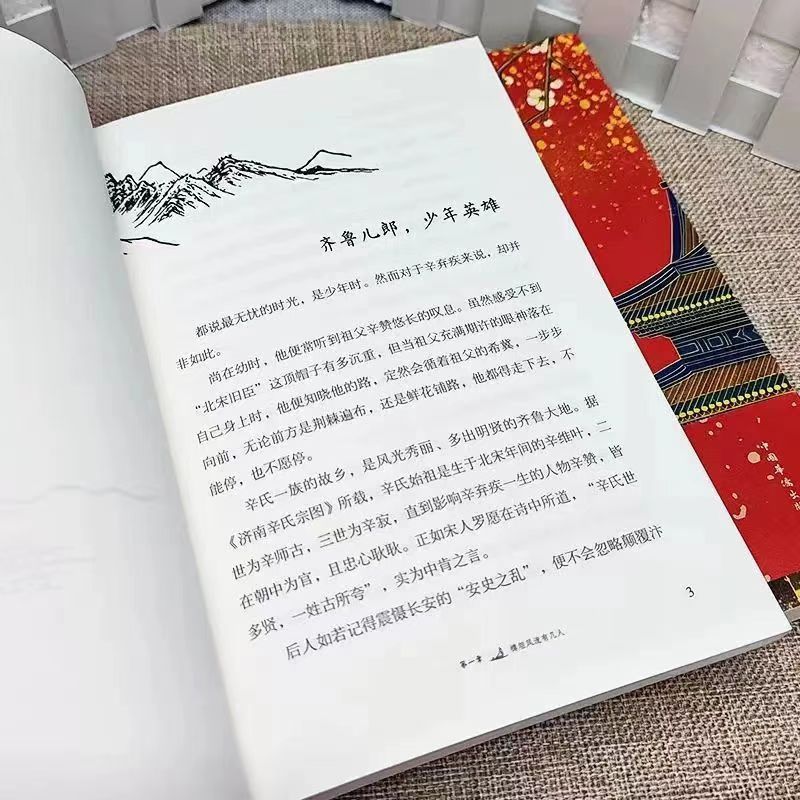 齐鲁儿郎，少年英雄
都说最无忧的时光，是少年时。然而对于辛弃疾来说，却并
非如此。
尚在幼时，他便常听到祖父辛赞悠长的叹息。虽然感受不到
“北宋旧臣”这顶帽子有多沉重，但当祖父充满期许的眼神落在
自己身上时，他便知晓他的路，定然会循着祖父的希冀，一步步
向前，无论前方是荆棘遍布，还是鲜花铺路，他都得走下去，不
能停，也不愿停。
辛氏一族的故乡，是风光秀丽、多出明贤的齐鲁大地。据
《济南辛氏宗图》所载，辛氏始祖是生于北宋年间的辛维叶，二
世为辛师古，三世为辛寂，直到影响辛弃疾一生的人物辛赞，皆
在朝中为官，且忠心耿耿。正如宋人罗愿在诗中所道，“辛氏世
多贤，一姓古所夸”，实为中肯之言。
后人如若记得震慑长安的“安史之乱”，便不会忽略颠覆汴
3
第一章 横愁风流有几人
中国华侨出版